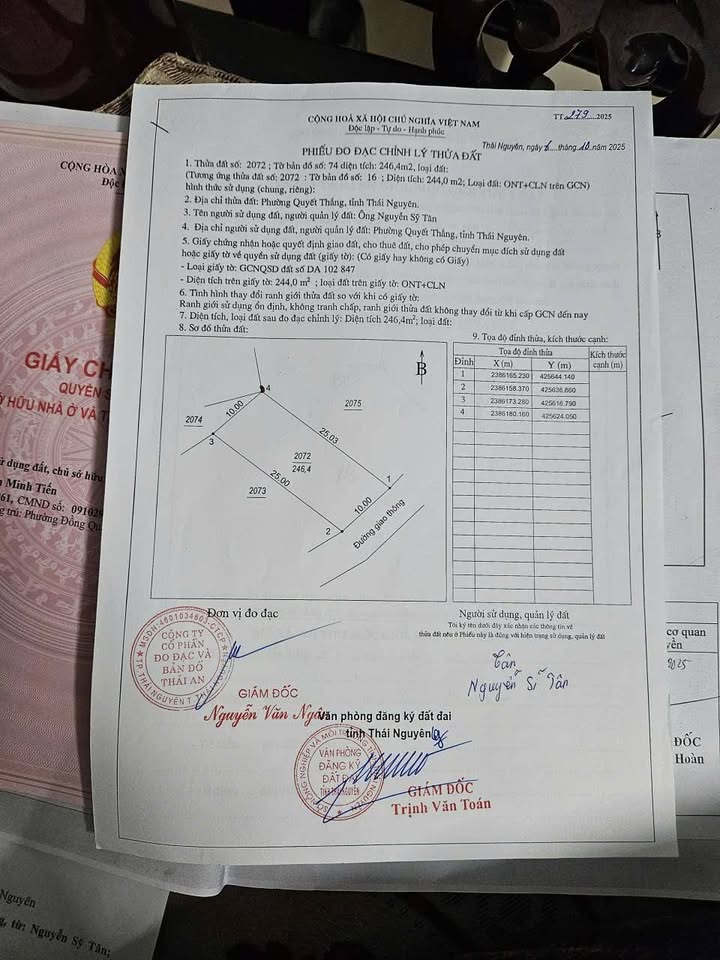 CỘNG HOÀ XÃ HỘI CHỦ NGHĨA VIỆT NAM
Độc lập - Tự do - Hạnh phúc
TT 279 2025
Thái Nguyên, ngày 6 tháng 10 năm 2025
PHIẾU ĐO ĐẠC CHỈNH LÝ THỬA ĐẤT
1. Thửa đất số: 2072 ; Tờ bản đồ số: 74 diện tích: 246,4m2, loại đất:
(Tương ứng thửa đất số: 2072 : Tờ bản đồ số: 16 ; Diện tích: 244,0 m2; Loại đất: ONT+CLN trên GCN)
hình thức sử dụng (chung, riêng):
2. Địa chỉ thửa đất: Phường Quyết Thắng, tỉnh Thái Nguyên.
3. Tên người sử dụng đất, người quản lý đất: Ông Nguyễn Sỹ Tân
4. Địa chỉ người sử dụng đất, người quản lý đất: Phường Quyết Thắng, tỉnh Thái Nguyên.
5. Giấy chứng nhận hoặc quyết định giao đất, cho thuê đất, cho phép chuyển mục đích sử dụng đất
hoặc giấy tờ về quyền sử dụng đất (giấy tờ): (Có giấy hay không có Giấy)
- Loại giấy tờ: GCNQSD đất số DA 102 847
- Diện tích trên giấy tờ: 244,0 m² ; loại đất trên giấy tờ: ONT+CLN
6. Tình hình thay đổi ranh giới thửa đất so với khi có giấy tờ:
Ranh giới sử dụng ổn định, không tranh chấp, ranh giới thửa đất không thay đổi từ khi cấp GCN đến nay
7. Diện tích, loại đất sau đo đạc chỉnh lý: Diện tích 246,4m²; loại đất:
8. Sơ đồ thửa đất:
9. Tọa độ đỉnh thửa, kích thước cạnh:
B
4
10.00
2074
3
2075
25.03
2072
246,4
25.00
2073
1
10.00
2
Đường giao thông
Đỉnh Tọa độ đỉnh thửa Kích thước cạnh (m)
X (m) Y (m)
1 2386165.230 425644.140
2 2386158.370 425636.860
3 2386173.280 425616.790
4 2386180.160 425624.050
Đơn vị đo đạc
Người sử dụng, quản lý đất
Tôi ký tên dưới đây xác nhận các thông tin về
thửa đất nêu ở Phiếu này là đúng với hiện trạng sử dụng, quản lý đất
M.S.D.N: 4601034603-C.T.C.P
CÔNG TY
CỔ PHẦN
ĐO ĐẠC VÀ
BẢN ĐỒ
THÁI AN
TP. THÁI NGUYÊN T. THÁI
GIÁM ĐỐC
Nguyễn Văn Ngân
Tân
Nguyễn Sĩ Tân
Văn phòng đăng ký đất đai
tỉnh Thái Nguyên
SỞ NÔNG NGHIỆP VÀ MÔI TRƯỜNG
VĂN PHÒNG
ĐĂNG KÝ
ĐẤT ĐAI
TỈNH THÁI NGUYÊN
GIÁM ĐỐC
Trịnh Văn Toán
CỘNG HÒA
Độc
GIẤY CH
QUYỀN S
Ở HỮU NHÀ Ở VÀ T
ử dụng đất, chủ sở hữu
Minh Tiến
61, CMND số: 09102
trú: Phường Đồng Qu
cơ quan
yền
2025
ĐỐC
Hoàn
Nguyên
từ: Nguyễn Sỹ Tân;